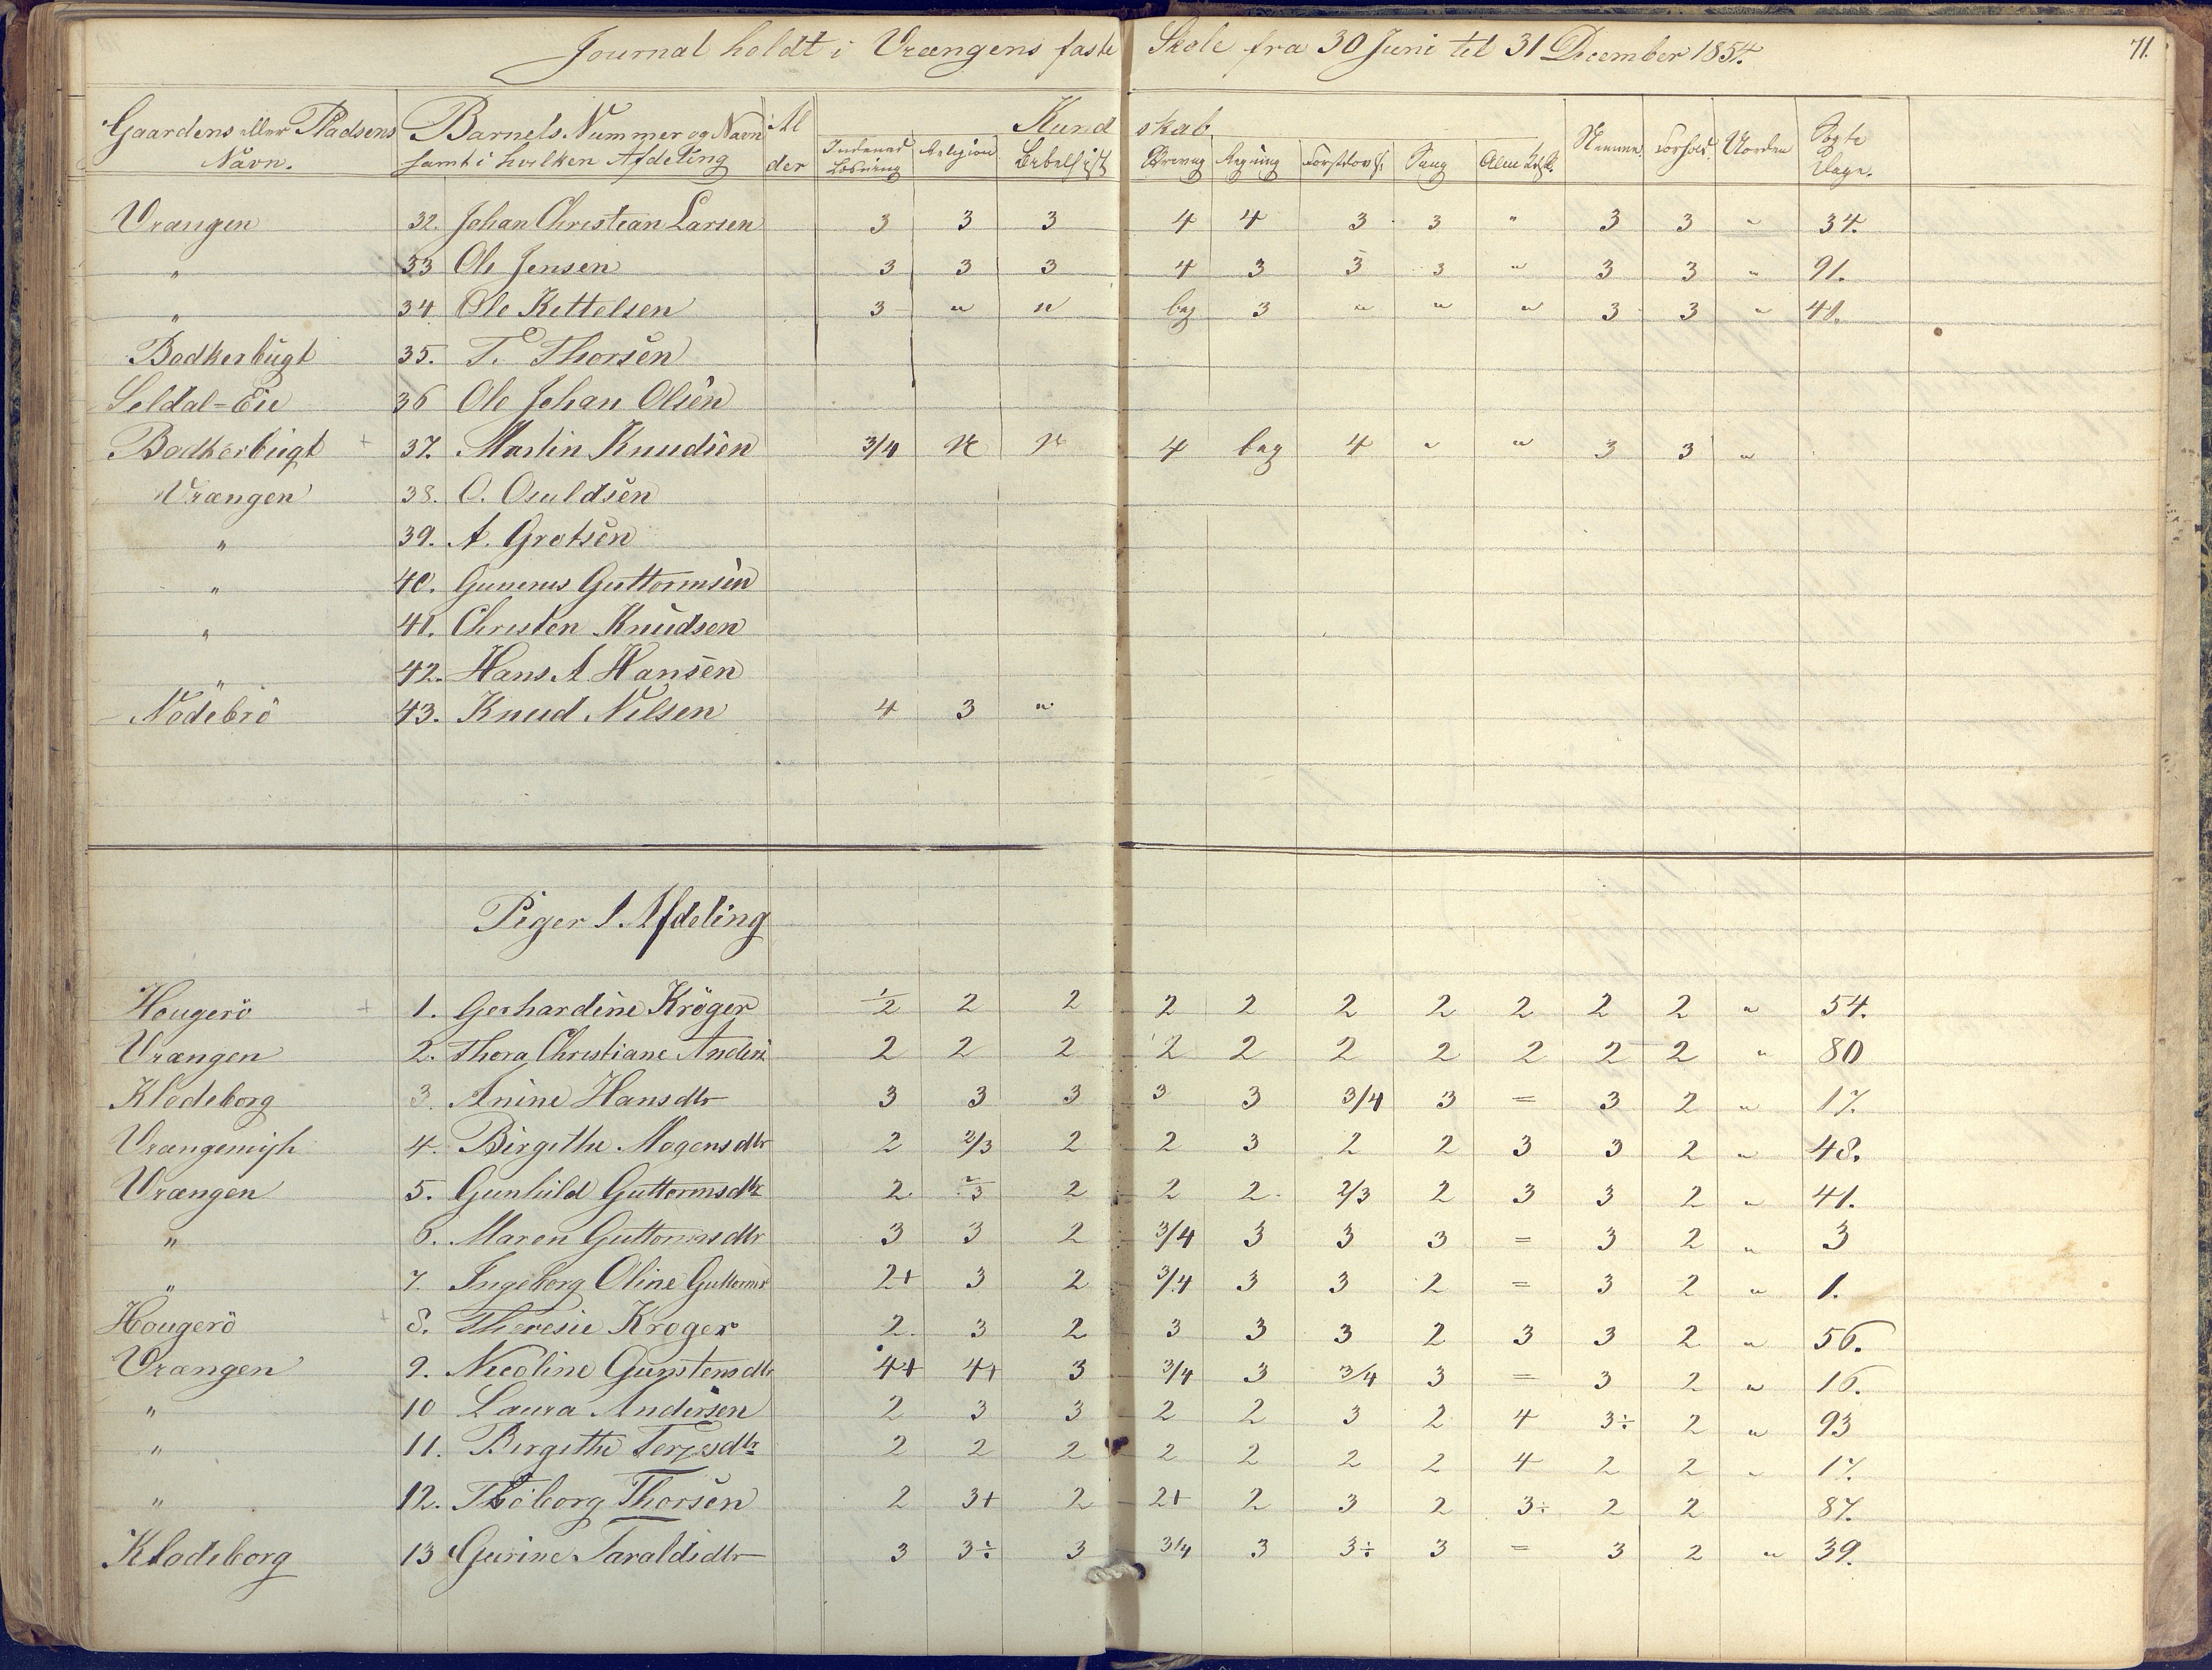 Journal holdt i Vrængens faste Skole fra 30 Juni til 31 December 1854.
71.
Gaardens eller Pladsens Navn.
Barnets Nummer og Navn samt i hvilken Afdeling
Alder
Kundskab
Indenads Læsning Religion Bibelhist Skrivning Regning Sang
Evne Forhold Uorden Søgte Dage.
Vrængen 32. Johan Christian Larsen 3 3 3 4 4 3 3 " 3 3 " 34.
" 33 Ole Jensen 3 3 3 4 3 3 3 " 3 3 " 91.
" 34 Ole Kettelsen 3 " " beg 3 " " " 3 3 " 41.
Bodkerbugt 35. T. Thorsen
Seldal-Eie 36 Ole Johan Olsen
Bodkerbugt + 37. Martin Knudsen 3/4 " " 4 beg 4 " " 3 3 "
Vrængen 38. O. Osuldsen
" 39. A. Grotsen
" 40. Gunerus Guttormsen
" 41. Christen Knudsen
" 42. Hans A. Hansen
Nödebrö 43. Knud Nilsen 4 3 "
Piger 1. Afdeling
Hougerö + 1. Gerhardine Kröger 1/2 2 2 2 2 2 2 2 2 2 " 54.
Vrængen 2. Thora Christiane Anders 2 2 2 2 2 2 2 2 2 2 " 80
Klodeborg 3. Anine Hansdtr 3 3 3 3 3 3/4 3 = 3 2 " 17.
4. Birgithe Mogensdtr 2 2/3 2 2 3 2 2 3 3 2 " 48.
Vrængen 5. Gunhild Guttormsdtr 2 2/3 2 2 2 2/3 2 3 3 2 " 41.
" 6. Maren Guttormsdtr 3 3 2 3/4 3 3 3 = 3 2 " 3
" 7. Ingeborg Oline Guttorms 2+ 3 2 3/4 3 3 2 = 3 2 " 1.
Hougerö + 8. Theresie Kroger 2 3 2 3 3 3 2 3 3 2 " 56.
Vrængen 9. Nicoline Gunstensdtr 4+ 4+ 3 3/4 3 3/4 3 = 3 2 " 16.
" 10 Laura Andersen 2 3 3 2 2 3 2 4 3÷ 2 " 93
" 11. Birgithe Terjesdtr 2 2 2 2 2 2 2 4 2 2 " 17.
" 12. Thoborg Thorsen 2 3+ 2 2+ 2 3 2 3÷ 2 2 87.
Klodeborg 13 Gurine Taraldsdtr 3 3÷ 3 3/4 3 3÷ 3 = 3 2 " 39.